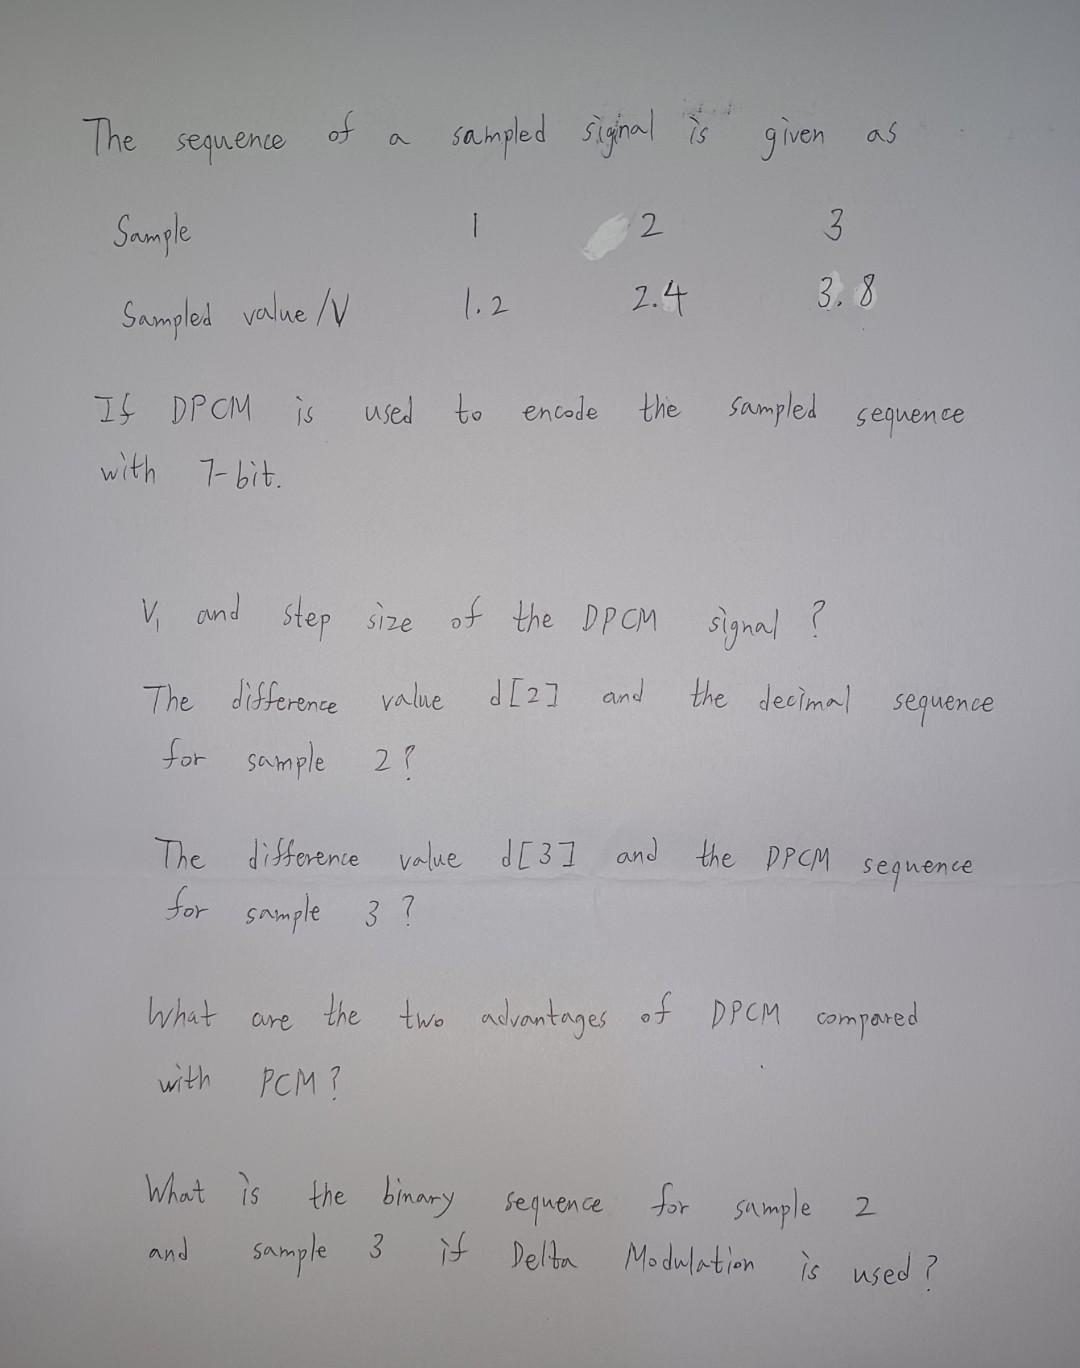 The sequence of a sampled signal is given as
Sample 1 2 3
Sampled value /V 1.2 2.4 3.8
If DPCM is used to encode the sampled sequence
with 7-bit.
V₁ and step size of the DPCM signal ?
The difference value d[2] and the decimal sequence
for sample 2 ?
The difference value d[3] and the DPCM sequence
for sample 3 ?
What are the two advantages of DPCM compared
with PCM ?
What is the binary sequence for sample 2
and sample 3 if Delta Modulation is used ?